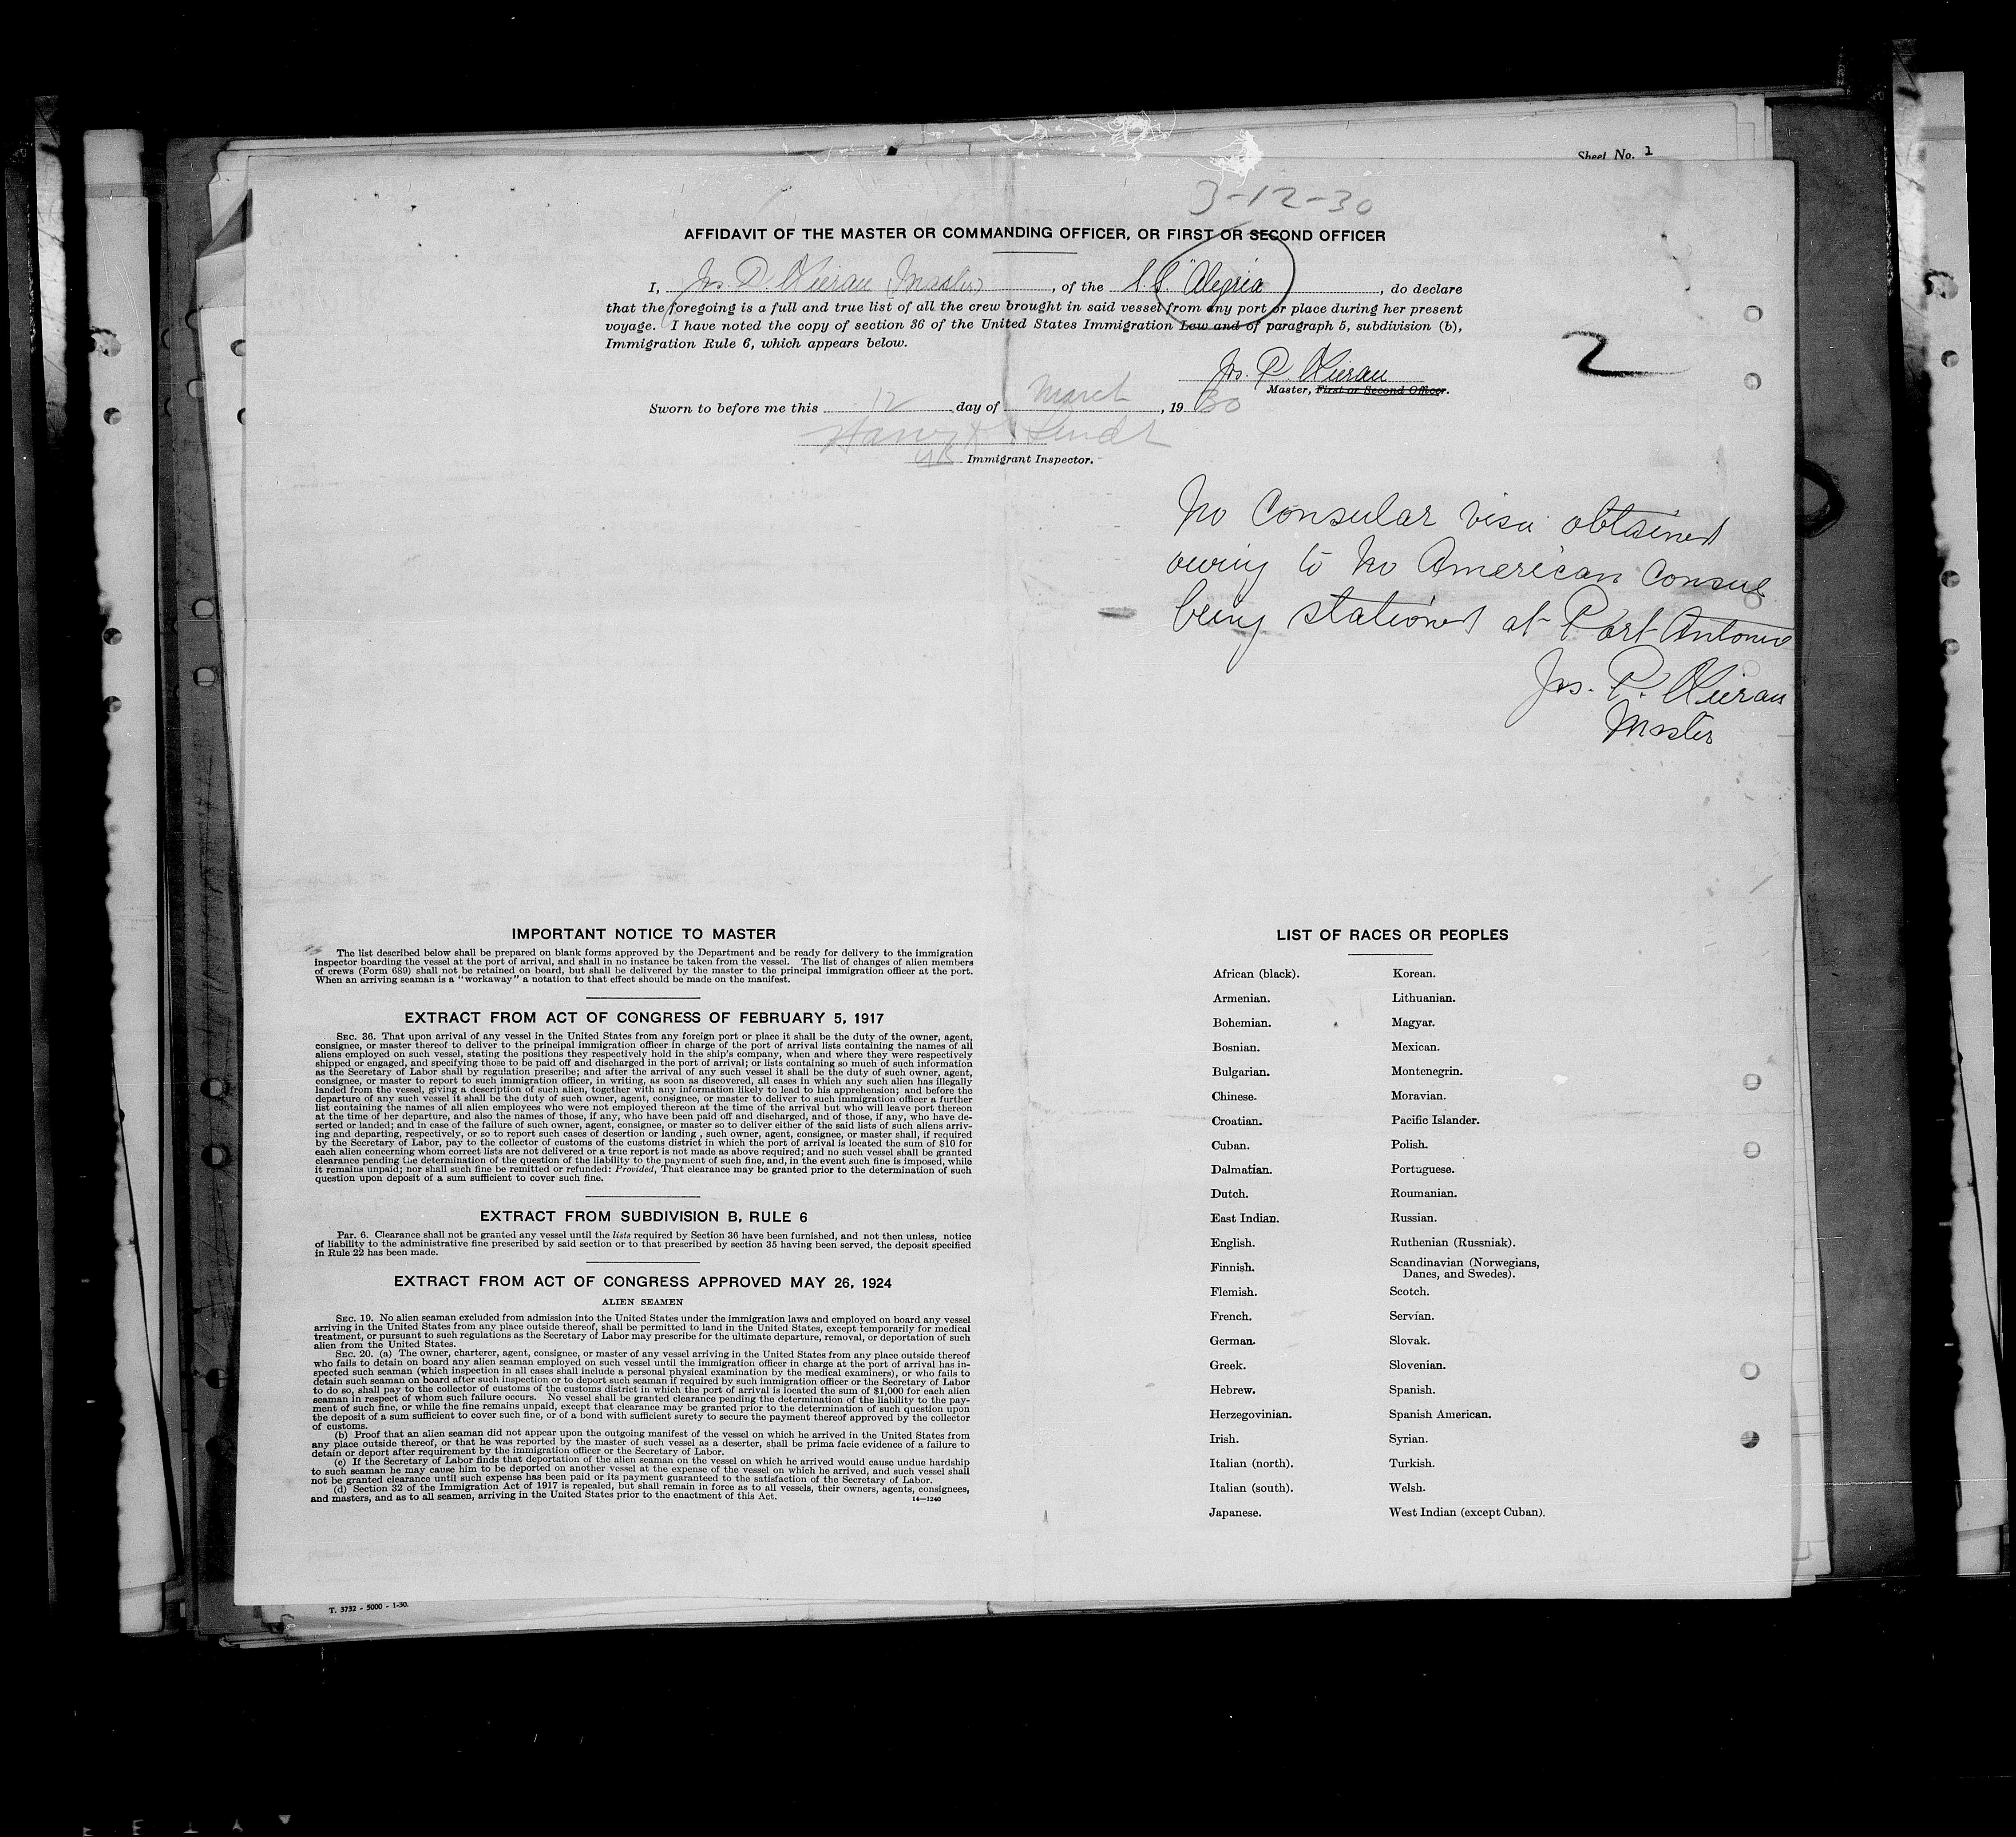 Sheet No. 1
3-12-30
AFFIDAVIT OF THE MASTER OR COMMANDING OFFICER, OR FIRST OR SECOND OFFICER
I, Jos. P. Kieran (Master), of the S.S. "Alegria, do declare
that the foregoing is a full and true list of all the crew brought in said vessel from any port or place during her present
voyage. I have noted the copy of section 36 of the United States Immigration Law and of paragraph 5, subdivision (b),
Immigration Rule 6, which appears below.
2
Jos. P. Kieran
Master, First or Second Officer.
Sworn to before me this 12 day of March, 1930
Harry
Immigrant Inspector.
No Consular visa obtained
owing to No American Consul
being stationed at Port Antonio
Jos. P. Kieran
Master
IMPORTANT NOTICE TO MASTER
The list described below shall be prepared on blank forms approved by the Department and be ready for delivery to the immigration
inspector boarding the vessel at the port of arrival, and shall in no instance be taken from the vessel. The list of changes of alien members
of crews (Form 689) shall not be retained on board, but shall be delivered by the master to the principal immigration officer at the port.
When an arriving seaman is a "workaway" a notation to that effect should be made on the manifest.
EXTRACT FROM ACT OF CONGRESS OF FEBRUARY 5, 1917
SEC. 36. That upon arrival of any vessel in the United States from any foreign port or place it shall be the duty of the owner, agent,
consignee, or master thereof to deliver to the principal immigration officer in charge of the port of arrival lists containing the names of all
aliens employed on such vessel, stating the positions they respectively hold in the ship's company, when and where they were respectively
shipped or engaged, and specifying those to be paid off and discharged in the port of arrival; or lists containing so much of such information
as the Secretary of Labor shall by regulation prescribe; and after the arrival of any such vessel it shall be the duty of such owner, agent,
consignee, or master to report to such immigration officer, in writing, as soon as discovered, all cases in which any such alien has illegally
landed from the vessel, giving a description of such alien, together with any information likely to lead to his apprehension; and before the
departure of any such vessel it shall be the duty of such owner, agent, consignee, or master to deliver to such immigration officer a further
list containing the names of all alien employees who were not employed thereon at the time of the arrival but who will leave port thereon
at the time of her departure, and also the names of those, if any, who have been paid off and discharged, and of those, if any, who have de-
serted or landed; and in case of the failure of such owner, agent, consignee, or master so to deliver either of the said lists of such aliens arriv-
ing and departing, respectively, or so to report such cases of desertion or landing , such owner, agent, consignee, or master shall, if required
by the Secretary of Labor, pay to the collector of customs of the customs district in which the port of arrival is located the sum of $10 for
each alien concerning whom correct lists are not delivered or a true report is not made as above required; and no such vessel shall be granted
clearance pending the determination of the question of the liability to the payment of such fine, and, in the event such fine is imposed, while
it remains unpaid; nor shall such fine be remitted or refunded: Provided, That clearance may be granted prior to the determination of such
question upon deposit of a sum sufficient to cover such fine.
EXTRACT FROM SUBDIVISION B, RULE 6
Par. 6. Clearance shall not be granted any vessel until the lists required by Section 36 have been furnished, and not then unless, notice
of liability to the administrative fine prescribed by said section or to that prescribed by section 35 having been served, the deposit specified
in Rule 22 has been made.
EXTRACT FROM ACT OF CONGRESS APPROVED MAY 26, 1924
ALIEN SEAMEN
SEC. 19. No alien seaman excluded from admission into the United States under the immigration laws and employed on board any vessel
arriving in the United States from any place outside thereof, shall be permitted to land in the United States, except temporarily for medical
treatment, or pursuant to such regulations as the Secretary of Labor may prescribe for the ultimate departure, removal, or deportation of such
alien from the United States.
SEC. 20. (a) The owner, charterer, agent, consignee, or master of any vessel arriving in the United States from any place outside thereof
who fails to detain on board any alien seaman employed on such vessel until the immigration officer in charge at the port of arrival has in-
spected such seaman (which inspection in all cases shall include a personal physical examination by the medical examiners), or who fails to
detain such seaman on board after such inspection or to deport such seaman if required by such immigration officer or the Secretary of Labor
to do so, shall pay to the collector of customs of the customs district in which the port of arrival is located the sum of $1,000 for each alien
seaman in respect of whom such failure occurs. No vessel shall be granted clearance pending the determination of the liability to the pay-
ment of such fine, or while the fine remains unpaid, except that clearance may be granted prior to the determination of such question upon
the deposit of a sum sufficient to cover such fine, or of a bond with sufficient surety to secure the payment thereof approved by the collector
of customs.
(b) Proof that an alien seaman did not appear upon the outgoing manifest of the vessel on which he arrived in the United States from
any place outside thereof, or that he was reported by the master of such vessel as a deserter, shall be prima facie evidence of a failure to
detain or deport after requirement by the immigration officer or the Secretary of Labor.
(c) If the Secretary of Labor finds that deportation of the alien seaman on the vessel on which he arrived would cause undue hardship
to such seaman he may cause him to be deported on another vessel at the expense of the vessel on which he arrived, and such vessel shall
not be granted clearance until such expense has been paid or its payment guaranteed to the satisfaction of the Secretary of Labor.
(d) Section 32 of the Immigration Act of 1917 is repealed, but shall remain in force as to all vessels, their owners, agents, consignees,
and masters, and as to all seamen, arriving in the United States prior to the enactment of this Act.
14—1240
LIST OF RACES OR PEOPLES
African (black).
Armenian.
Bohemian.
Bosnian.
Bulgarian.
Chinese.
Croatian.
Cuban.
Dalmatian.
Dutch.
East Indian.
English.
Finnish.
Flemish.
French.
German.
Greek.
Hebrew.
Herzegovinian.
Irish.
Italian (north).
Italian (south).
Japanese.
Korean.
Lithuanian.
Magyar.
Mexican.
Montenegrin.
Moravian.
Pacific Islander.
Polish.
Portuguese.
Roumanian.
Russian.
Ruthenian (Russniak).
Scandinavian (Norwegians,
Danes, and Swedes).
Scotch.
Servian.
Slovak.
Slovenian.
Spanish.
Spanish American.
Syrian.
Turkish.
Welsh.
West Indian (except Cuban).
T. 3732 - 5000 - 1-30.